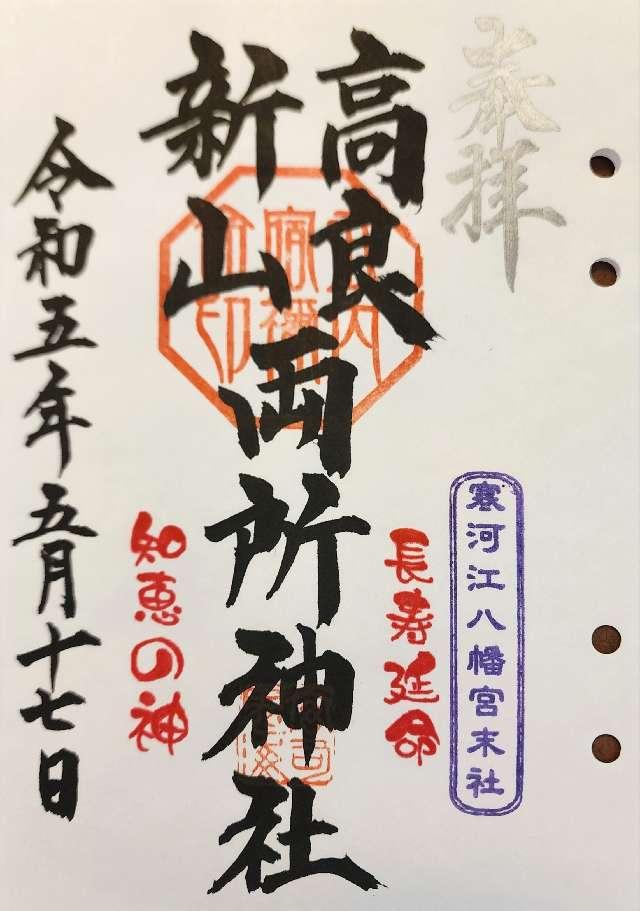 奉拝
寒河江八幡宮末社
長寿延命
高良
新山
両所神社
知恵の神
令和五年五月十七日